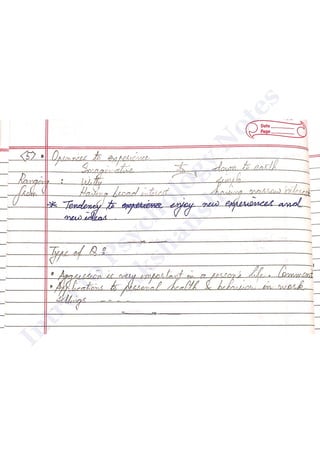 Date
Page
<5> • Openness to experience
Imaginative to down to earth
Ranging : Witty simple
from Having broad interest having narrow interest
* Tendency to experience enjoy new experiences and
new ideas
Type of Q ?
• Aggression is very important in a person's life. Comment
• Applications to personal health & behavior in work
settings ----
Psychology Notes